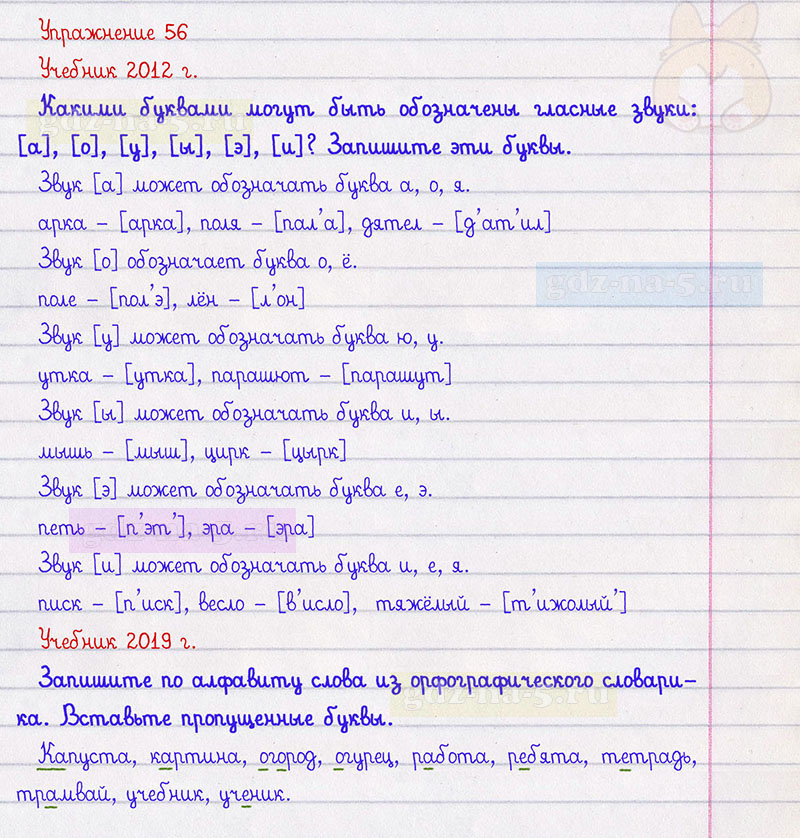 Упражнение 56
Учебник 2012 г.
Какими буквами могут быть обозначены гласные звуки:
[а], [о], [у], [ы], [э], [и]? Запишите эти буквы.
Звук [а] может обозначать буква а, о, я.
арка – [арка], поля – [пал'а], дятел – [д'ат'ил]
Звук [о] обозначает буква о, ё.
gdz-na-5.ru
поле – [пол'э], лён – [л'он]
Звук [у] может обозначать буква ю, у.
утка – [утка], парашют – [парашут]
Звук [ы] может обозначать буква и, ы.
мышь – [мыш], цирк – [цырк]
Звук [э] может обозначать буква е, э.
петь – [п'эт'], эра – [эра]
Звук [и] может обозначать буква и, е, я.
писк – [п'иск], весло – [в'исло], тяжёлый – [т'ижолый']
Учебник 2019 г.
Запишите по алфавиту слова из орфографического словари–
gdz-na-5.ru
ка. Вставьте пропущенные буквы.
Капуста, картина, огород, огурец, работа, ребята, тетрадь,
трамвай, учебник, ученик.